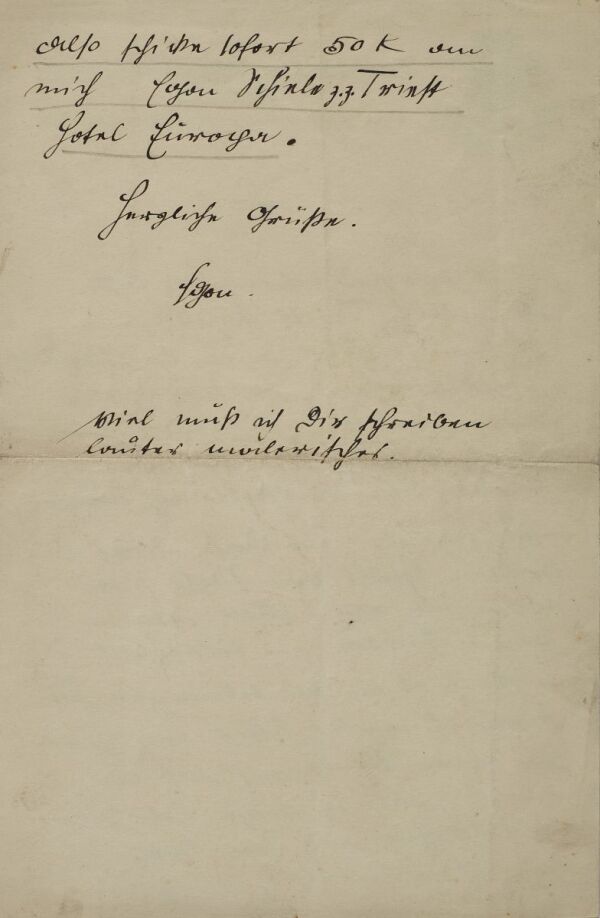 also schike sofort 50 K an
mich Egon Schiele z.z. Triest
Hotel Europa.
Herzliche Grüße.
Egon.
Viel muß ich Dir schreiben
lauter malerisches.